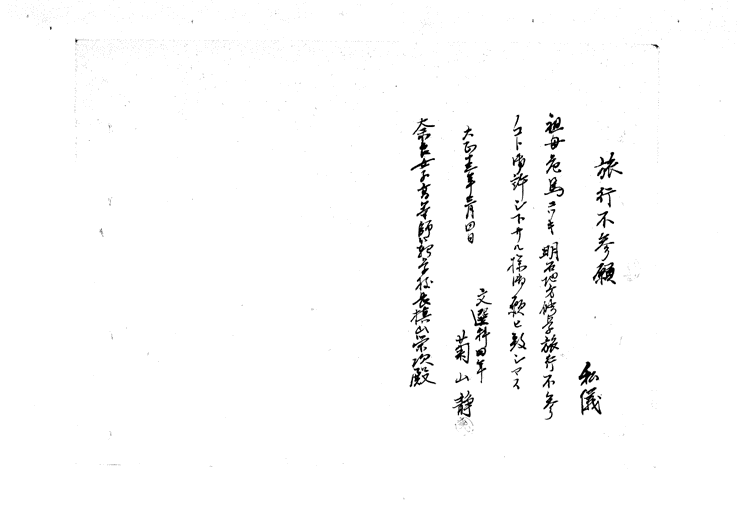 旅行不参願
私儀
祖母危篤ニツキ明石地方修学旅行不参
ノコト御許シ下サル様御願ヒ致シマス
大正十三年三月四日
文選科四年
菊山静
奈良女子高等師範学校長槙山栄次殿